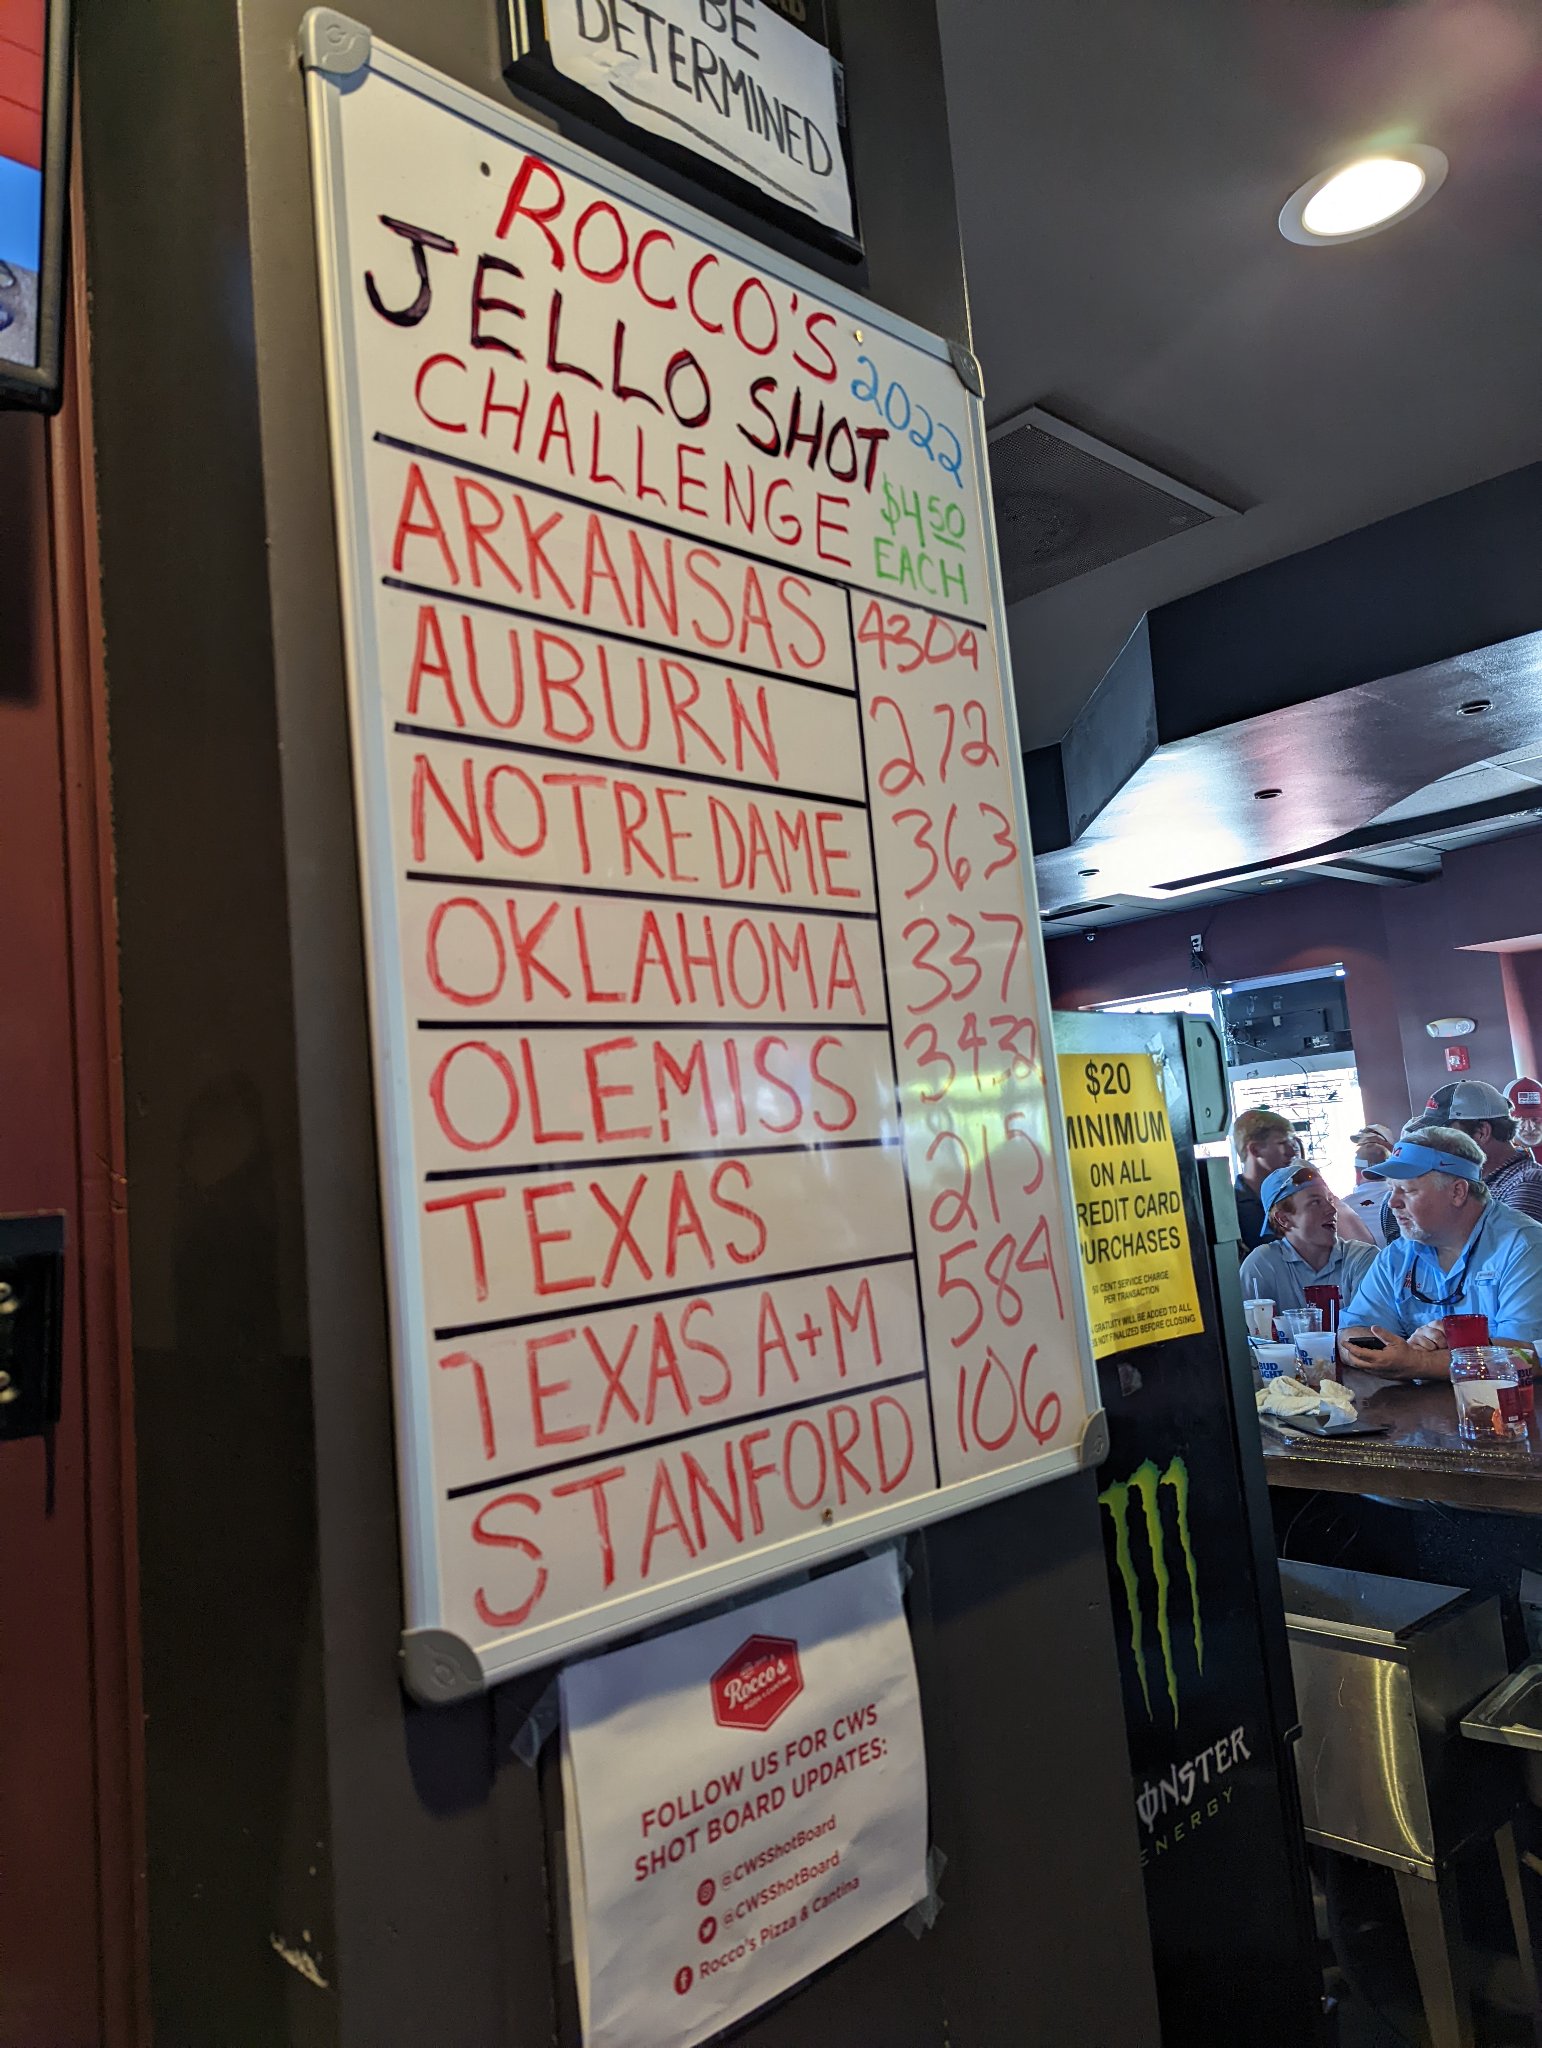 BE
DETERMINED
ROCCO'S 2022
JELLO SHOT
CHALLENGE $4.50
EACH
ARKANSAS 4304
AUBURN 272
NOTRE DAME 363
OKLAHOMA 337
OLE MISS
TEXAS 215
TEXAS A+M 584
STANFORD 106
Rocco's
PIZZA & CANTINA
FOLLOW US FOR CWS
SHOT BOARD UPDATES:
@CWSShotBoard
@CWSShotBoard
Rocco's Pizza & Cantina
$20
MINIMUM
ON ALL
REDIT CARD
PURCHASES
50 CENT SERVICE CHARGE
PER TRANSACTION
GRATUITY WILL BE ADDED TO ALL
NOT FINALIZED BEFORE CLOSING
ONSTER
ENERGY
BUD
LIGHT